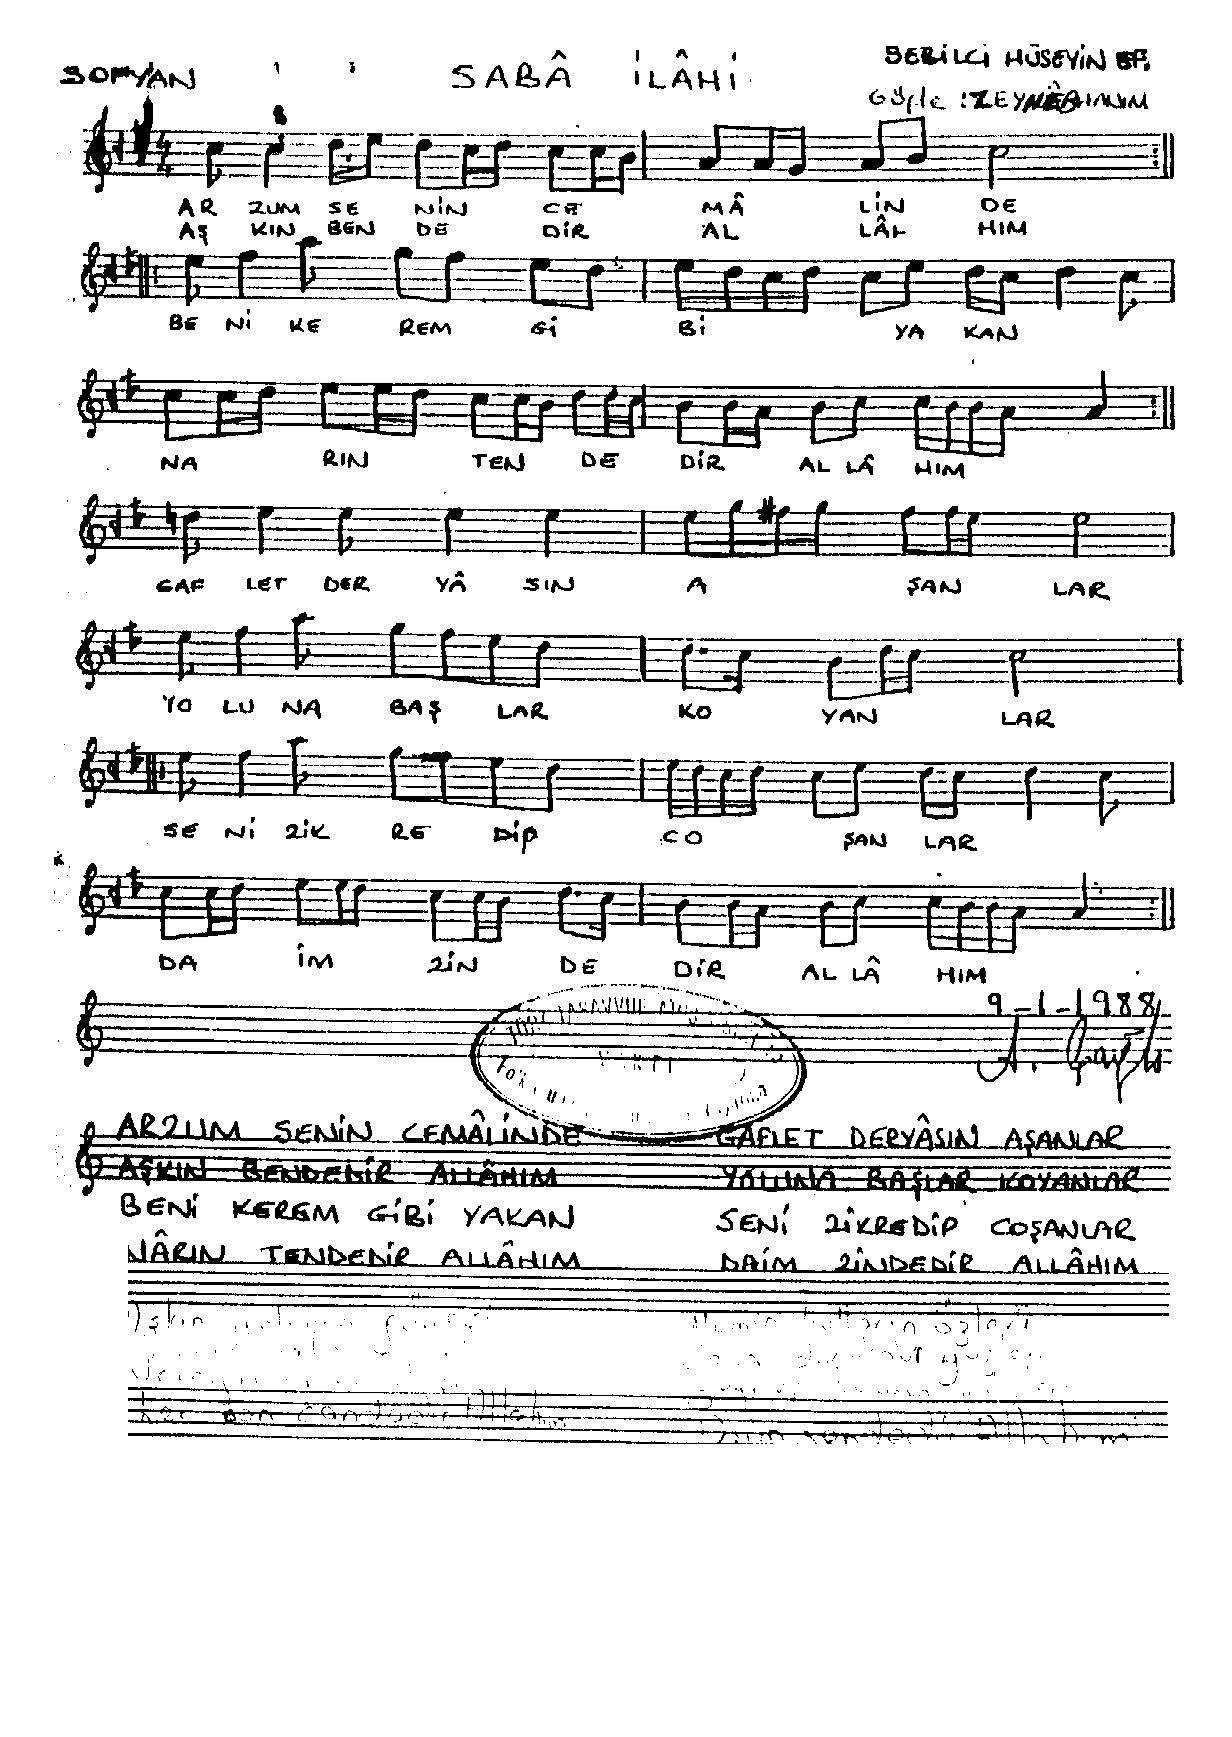 SOFYAN
SABÂ İLÂHİ
SEBİLCİ HÜSEYİN EF.
Güfte : ZEYNEB HANIM
4
4
AR ZUM SE NİN CE MÂ LİN DE
AŞ KIN BEN DE DİR AL LÂH HIM
BE Nİ KE REM Gİ Bİ YA KAN
NA RIN TEN DE DİR AL LÂ HIM
GAF LET DER YÂ SIN A ŞAN LAR
YO LU NA BAŞ LAR KO YAN LAR
SE Nİ ZİK RE DİP CO ŞAN LAR
DA İM ZİN DE DİR AL LÂ HIM
9-1-1988
ARZUM SENİN CEMÂLİNDE
AŞKIN BENDEDİR ALLÂHIM
BENİ KEREM GİBİ YAKAN
NÂRIN TENDEDİR ALLÂHIM
GAFLET DERYÂSIN AŞANLAR
YOLUNA BAŞLAR KOYANLAR
SENİ ZİKREDİP COŞANLAR
DAİM ZİNDEDİR ALLÂHIM